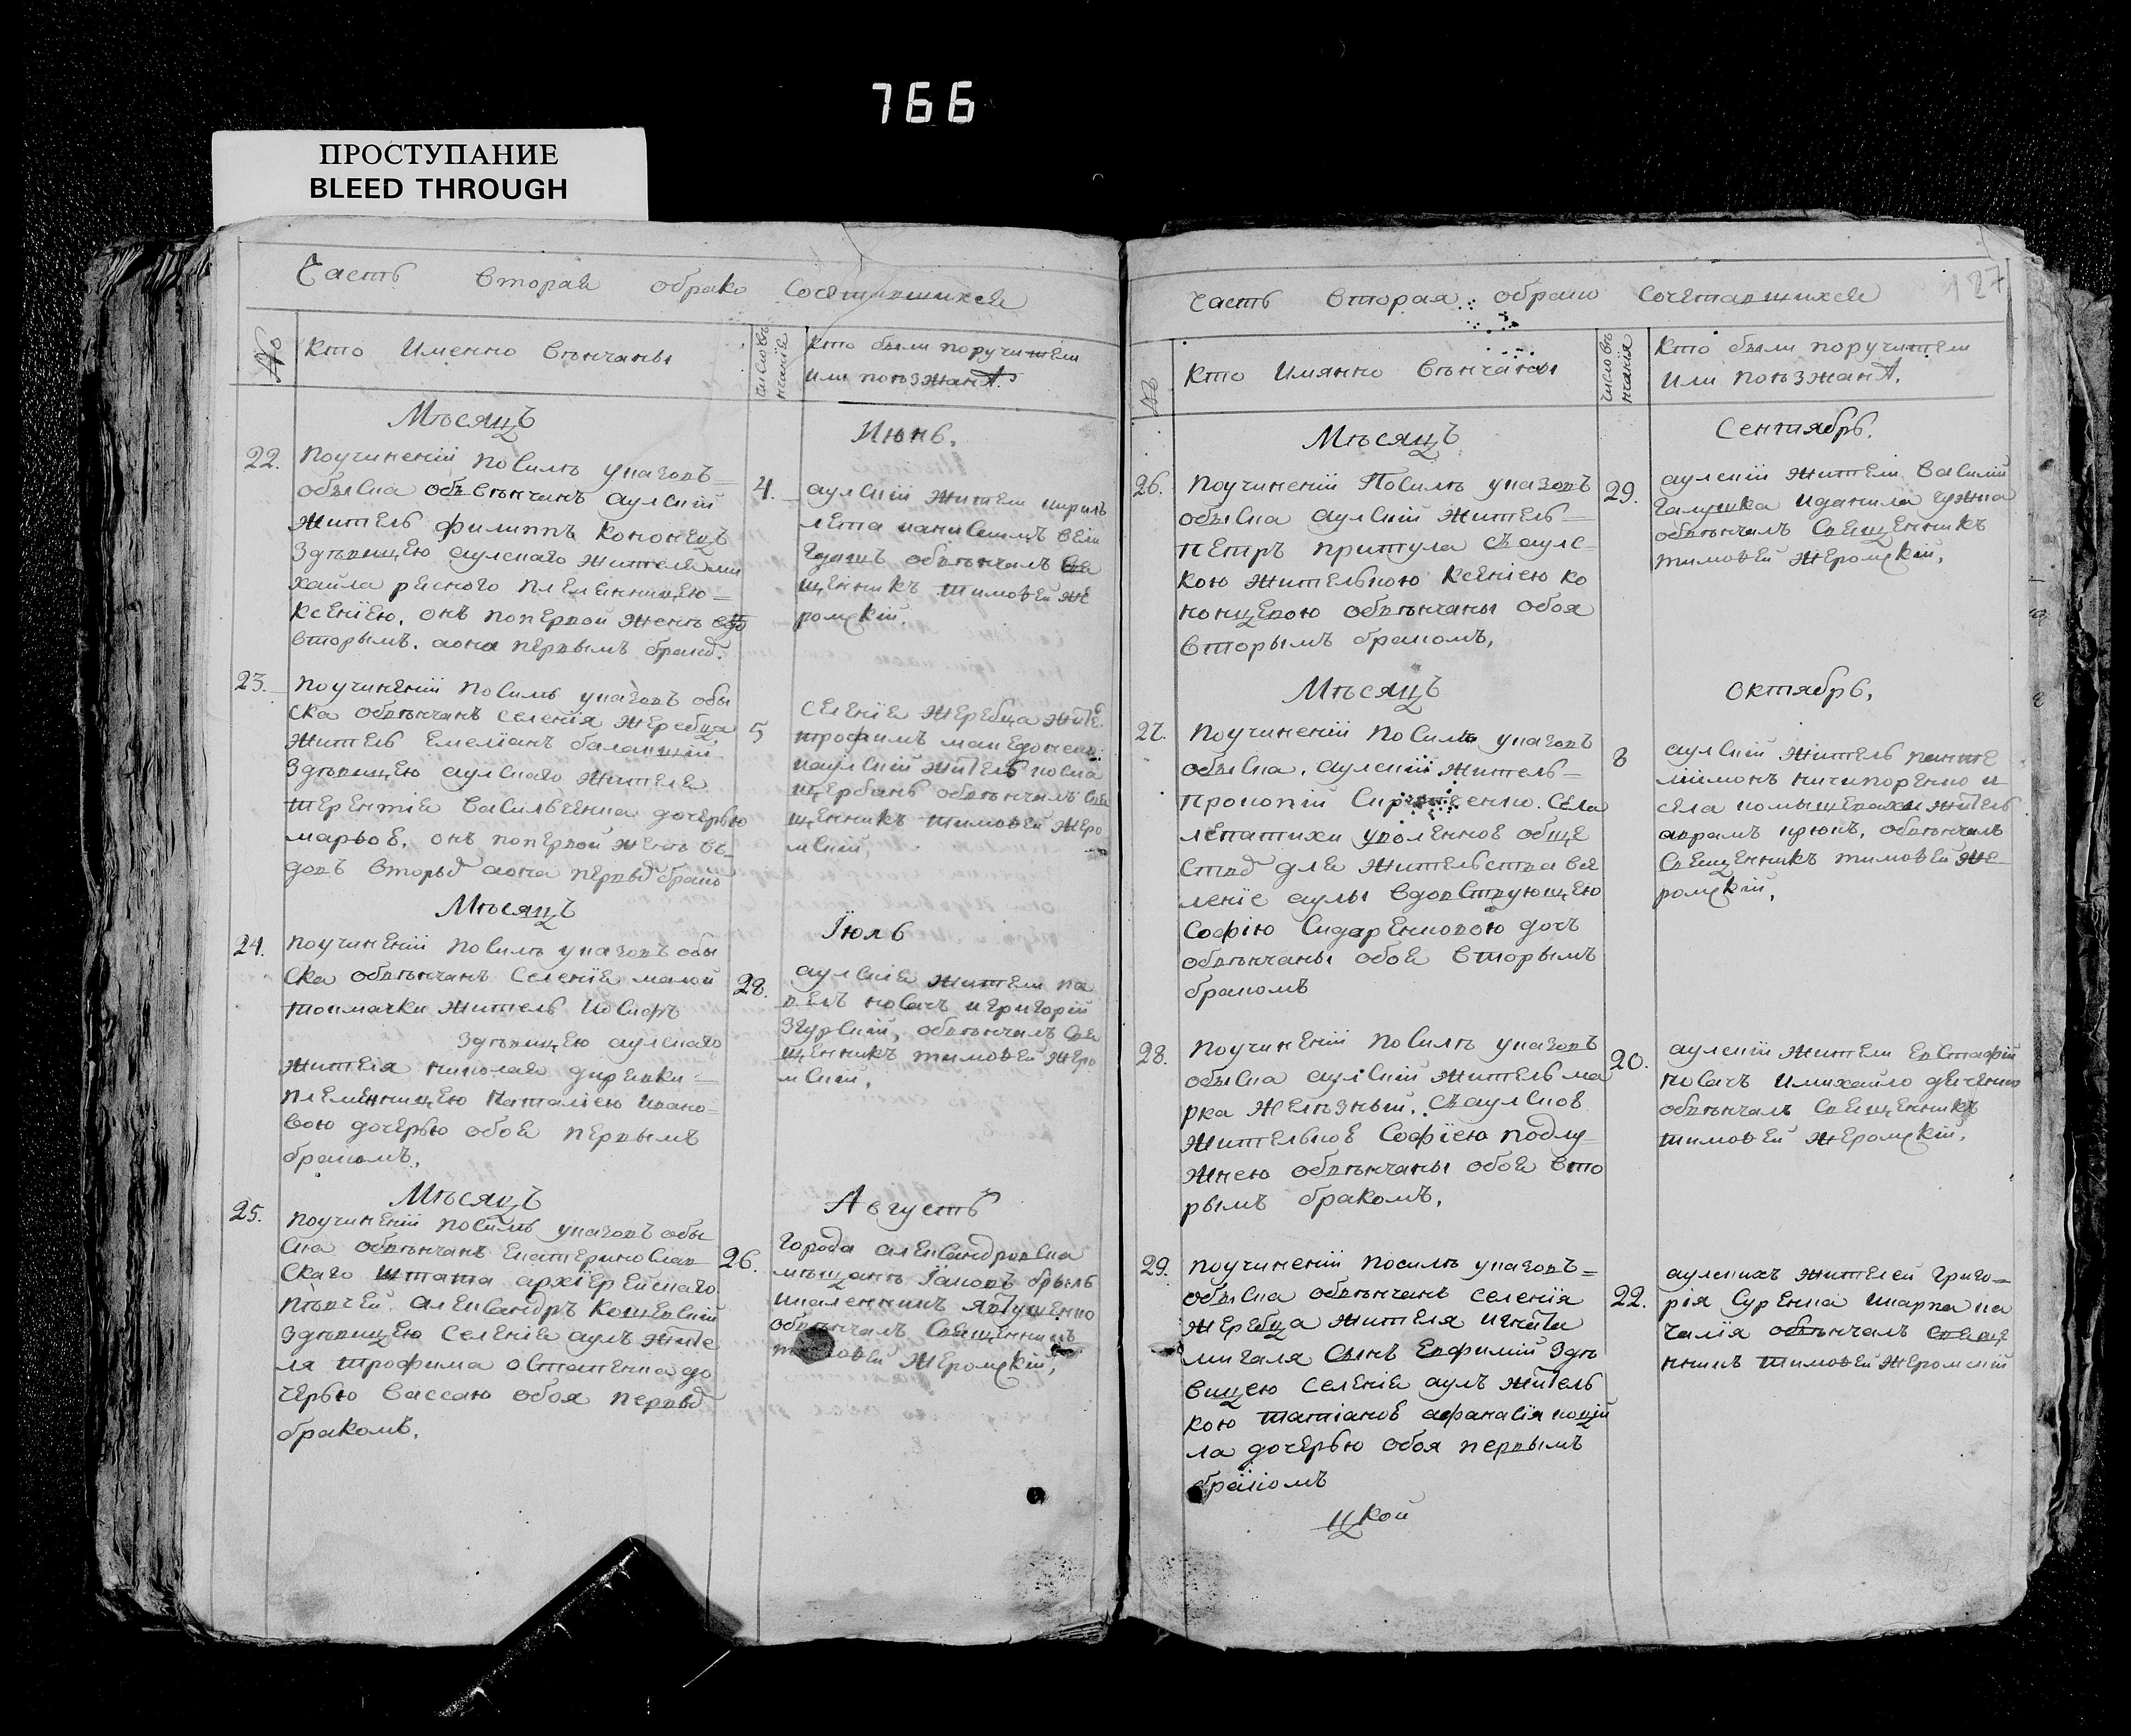 766
ПРОСТУПАНИЕ
BLEED THROUGH
Часть вторая обрако сочетавшихся
№
Кто Именно вѣнчаны
число вѣнчанїя
Кто были поручители
или поѣзжанѣ.
Мѣсяцъ
Июнь.
22.
поучинений посилѣ указовъ=
обыска обвѣнчанъ аулский
житель филиппъ кононецъ
здѣвицею аулскаго жителя ми
хаила ресного племенницею=
ксениею, онъ попервой женѣ
вторымъ, аона первымъ брако.
4.
аулский жители кирилъ
обвѣнчалъ свя
щенникъ тимофей же
ромский.
23.
поучинений посилѣ указовъ обы
ска обвѣнчанъ селенїя жеребца
житель емелїанъ балацкий
здѣвицею аулскаго жителя
терентїя васильченка дочерью
марфоѣ, онъ попервой женѣ въ
довъ вторы аона первы брако
5
селенїя жеребца жите.
трофимъ македонецъ
иаулский житель козма
щербань обвѣнчалъ свя
щенникъ тимофей жеро
мский.
Мѣсяцъ
Їюль
24.
поучинений посилѣ указовъ обы
ска обвѣнчанъ селенїя малой
токмачки житель иосифъ
здѣвицею аулскаго
жителя николая диренки=
племѣнницею наталїею ивано=
вою дочерью обоя первымъ
бракомъ.
28.
аулскїя жители па
велъ коваль и григорий
згурский, обвѣнчалъ свя
щенникъ тимофей жеро
мский.
Мѣсяцъ
Августъ
25.
поучинений посилѣ указовъ обы
ска обвѣнчанъ екатеринослав
скаго штата архїерейскаго
пѣвчей александръ кощевский
здѣвицею селенїя аулъ жите
ля трофима осташенка до
черью вассаю обоя первы
бракомъ.
26.
города александровска
мѣщане їаковъ брыль
икаленникъ явтушенко
обвѣнчалъ священникъ
тимофей жеромский.
127
Часть вторая обрако сочетавшихся
№
Кто Имянно вѣнчаны
число вѣнчанїя
Кто были поручители
или поѣзжанѣ.
Мѣсяцъ
Сентябрь.
26.
поучинений посилѣ указовъ
обыска аулский житель=
петръ притула съ аулс
кою жителькою ксенїею ко
нонцевою обвѣнчаны обоя
вторымъ бракомъ.
29.
аулский жители василий
галушка иданила чужна
обвѣнчалъ священникъ
тимофей жеромский.
Мѣсяцъ
Октябрь.
27.
поучинений посилѣ указовъ
обыска, аулский житель=
прокопий села
лепатихи уволенное обще
ство для жительства все
ленїе аулы вдовствующею
софїю сидаренковою дочь
обвѣнчаны обоя вторымъ
бракомъ
8
аулский житель панте
лїймонъ ничипоренко и
села комышевахи житель
аврамъ крюкъ, обвѣнчалъ
священникъ тимофей же
ромский.
28.
поучинений посилѣ указовъ
обыска аулский житель ма
рка желѣзный, съ аулскоѣ
жителькоѣ софїею подлу
жнею обвѣнчаны обоя вто
рымъ бракомъ.
20.
аулский жители евстафий
коваль имихайло дяченко
обвѣнчалъ священникъ
тимофей жеромский.
29.
поучинений посилѣ указовъ=
обыска обвѣнчанъ селенїя
жеребца жителя игната
мигаля сынъ евфимий здѣ
вицею селенїя аулъ житель
кою татїаноѣ афанасїя коци
ла дочерью обоя первымъ
бракомъ
22.
аулскихъ жителей григо=
рїя суренка икарпа ка
чалїя обвѣнчалъ священ
никъ тимофей жеромский
цкой